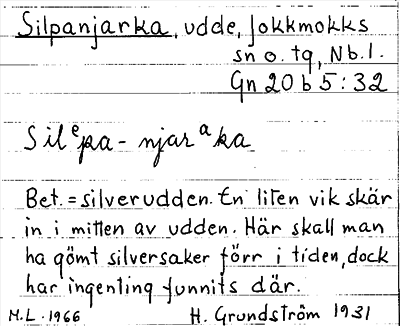 Silpanjarka, udde, Jokkmokks
sn o. tg, Nb.l.
Gn 20 b 5:32
Silᵉpa-njarᵃka
Bet. = silverudden. En liten vik skär
in i mitten av udden. Här skall man
ha gömt silversaker förr i tiden, dock
har ingenting funnits där.
M.L. 1966 H. Grundström 1931